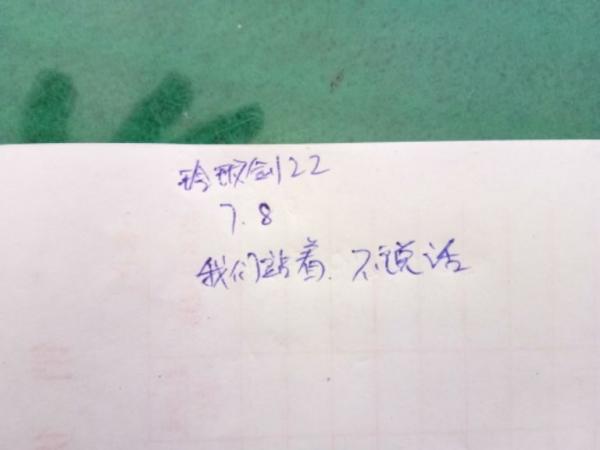 玲珑剑22
7.8
我们站着.不说话